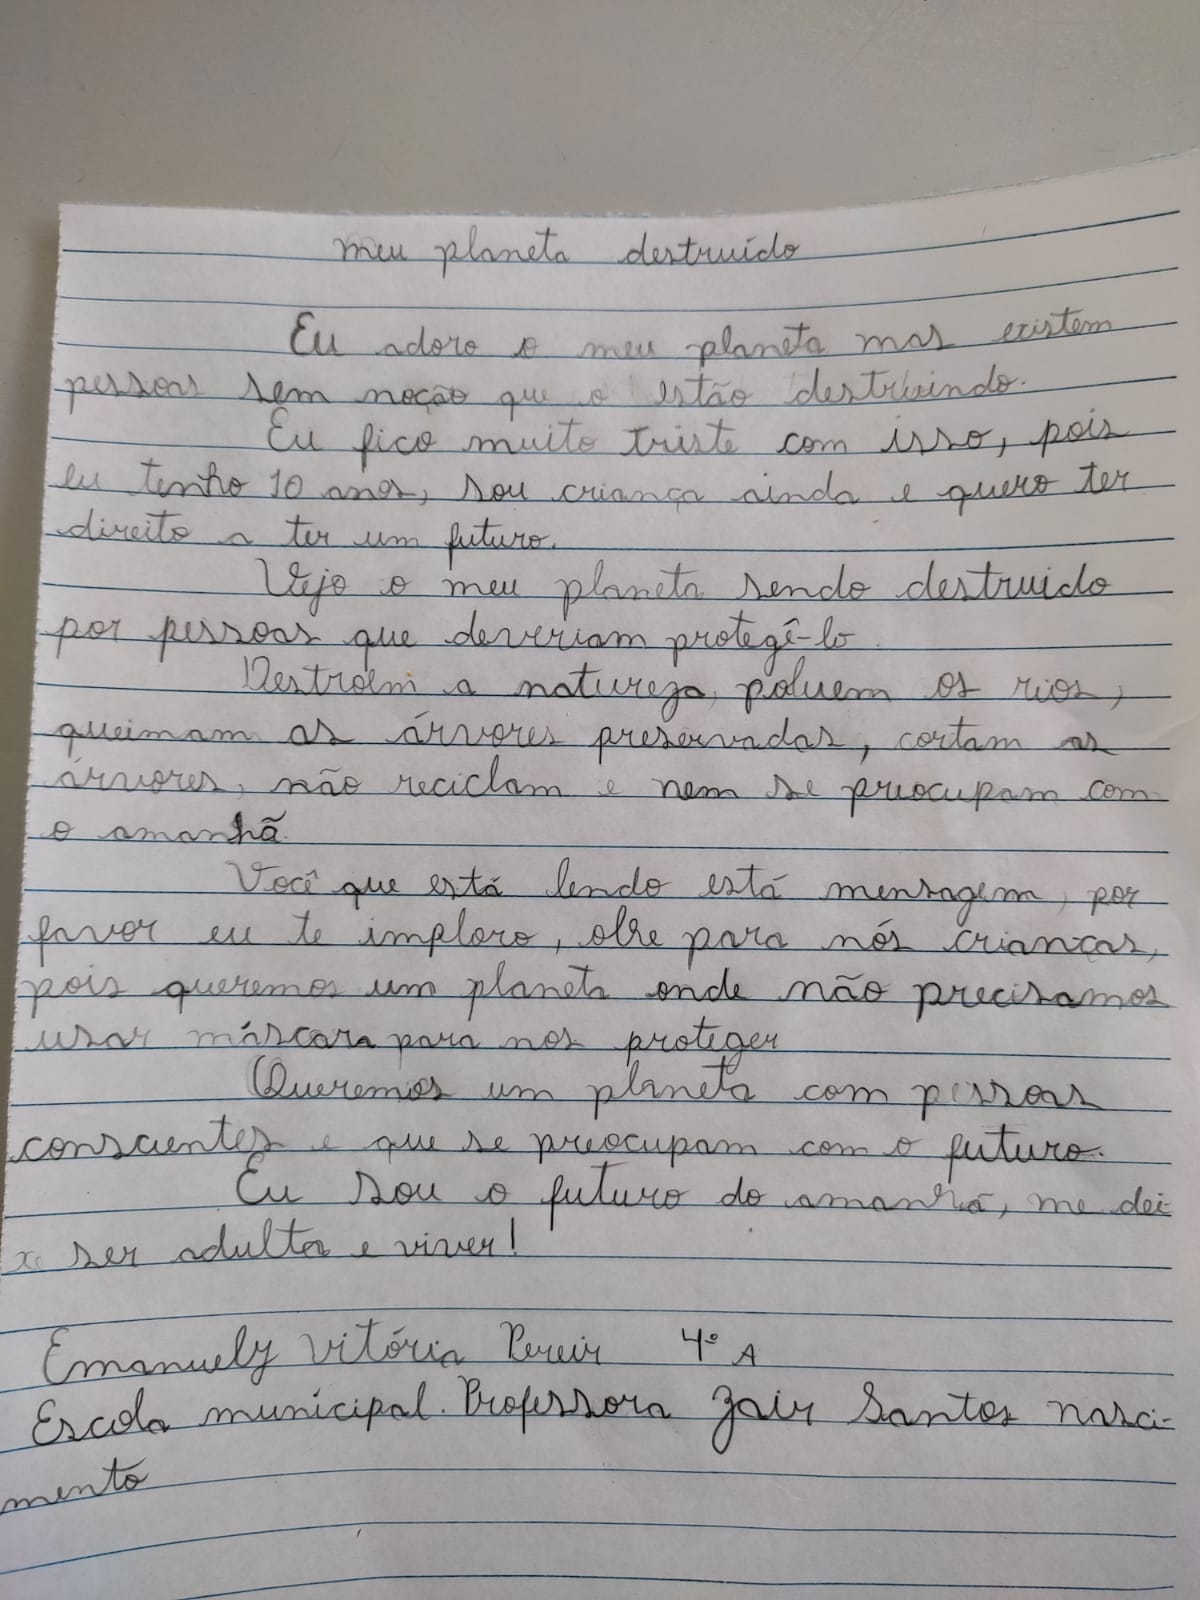 meu planeta destruído
Eu adoro o meu planeta mas existem
pessoas sem noção que o estão destruindo.
Eu fico muito triste com isso, pois
eu tenho 10 anos, sou criança ainda e quero ter
direito a ter um futuro.
Vejo o meu planeta sendo destruido
por pessoas que deveriam protegê-lo.
Destroem a natureza, poluem os rios,
queimam as árvores preservadas, cortam as
árvores, não reciclam e nem se preocupam com
o amanhã.
Você que está lendo está mensagem, por
favor eu te imploro, olhe para nós crianças,
pois queremos um planeta onde não precisamos
usar máscara para nos proteger
Queremos um planeta com pessoas
conscientes e que se preocupam com o futuro.
Eu sou o futuro do amanhã, me dei-
xe ser adulta e viver!
Emanuely Vitória Pereir 4º A
Escola municipal. Professora Zair Santos nasci-
mento